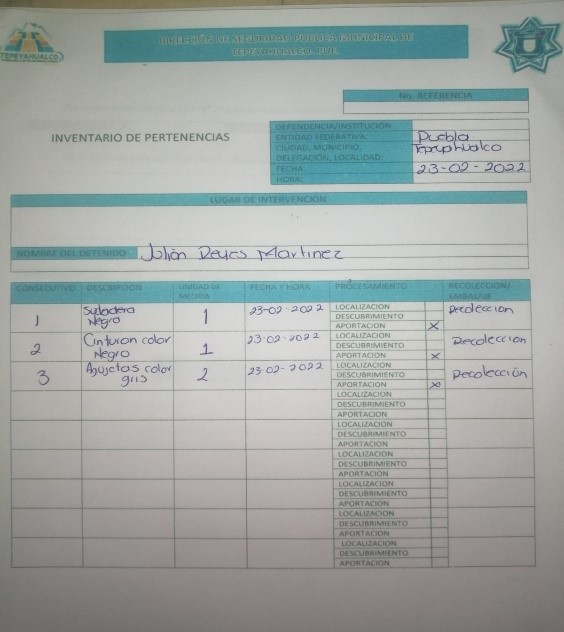 TEPEYAHUALCO
DIRECCIÓN DE SEGURIDAD PUBLICA MUNICIPAL DE
TEPEYAHUALCO, PUE.
No. REFERENCIA
INVENTARIO DE PERTENENCIAS
DEPENDENCIA/INSTITUCIÓN
ENTIDAD FEDERATIVA: Puebla
CIUDAD, MUNICIPIO,
DELEGACIÓN, LOCALIDAD:
FECHA: 23-02-2022
HORA:
LUGAR DE INTERVENCIÓN
NOMBRE DEL DETENIDO: Julián Reyes Martinez
CONSECUTIVO DESCRIPCIÓN UNIDAD DE MEDIDA FECHA Y HORA PROCESAMIENTO RECOLECCIÓN/ EMBALAJE
1 Negro 1 23-02-2022 LOCALIZACION Recoleccion
DESCUBRIMIENTO
APORTACION x
2 Cinturon color Negro 1 23-02-2022 LOCALIZACION Recoleccion
DESCUBRIMIENTO
APORTACION x
3 Agujetas color gris 2 23-02-2022 LOCALIZACION Recolección
DESCUBRIMIENTO
APORTACION x
LOCALIZACION
DESCUBRIMIENTO
APORTACION
LOCALIZACION
DESCUBRIMIENTO
APORTACION
LOCALIZACION
DESCUBRIMIENTO
APORTACION
LOCALIZACION
DESCUBRIMIENTO
APORTACION
LOCALIZACION
DESCUBRIMIENTO
APORTACION
LOCALIZACION
DESCUBRIMIENTO
APORTACION